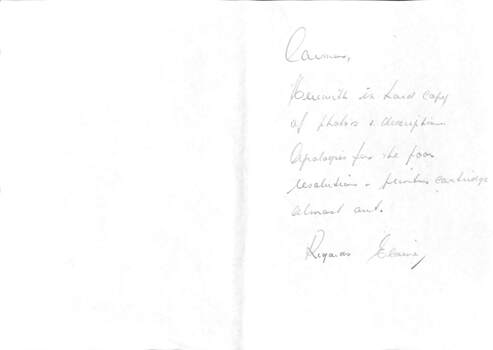 Herewith is hard copy
of photos & description
Apologies for the poor
resolution - printer cartridge
almost out.
Regards Elaine,